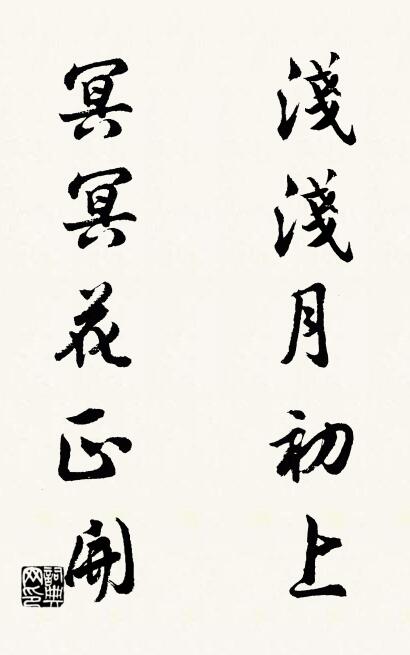 淺淺月初上
冥冥花正開
詞典網印